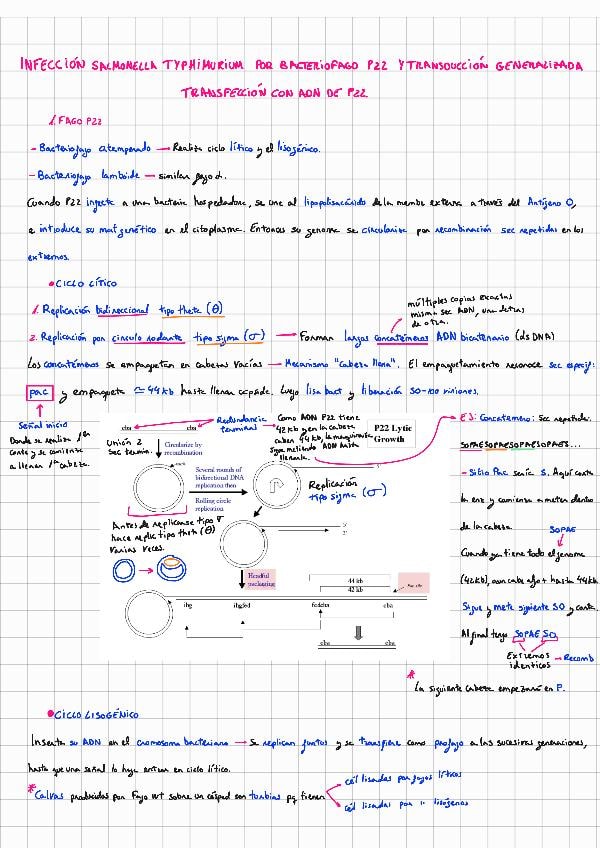 INFECCIÓN SALMONELLA TYPHIMURIUM POR BACTERIOFAGO P22 Y TRANSDUCCIÓN GENERALIZADA
TRANSFECCIÓN CON ADN DE P22
1. FAGO P22
- Bacteriofago atemperado — Realiza ciclo lítico y el lisogénico.
- Bacteriofago lamboide — similar fago λ.
Cuando P22 infecta a una bacteria hospedadora, se une al lipopolisacárido de la membr externa a través del Antígeno O,
e introduce su mat genético en el citoplasma. Entonces su genoma se circulariza por recombinación sec repetidas en los
extremos.
• CICLO LÍTICO
1. Replicación bidireccional tipo theta (θ)
múltiples copias exactas
misma sec ADN, una detras
de otra.
2. Replicación por círculo rodante tipo sigma (σ) → Forman largos concatémeros ADN bicatenario (dsDNA)
Los concatémeros se empaquetan en cabezas vacías — Mecanismo "Cabeza llena". El empaquetamiento reconoce sec especif:
pac y empaqueta ≃ 44 kb hasta llenar cápside. Luego lisa bact y liberación 50-100 viriones.
Señal inicio
Donde se realiza 1er
corte y se comienza
a llenar 1ª cabeza.
cba cba
Redundancia
terminal
Unión 2
Sec termin.
Circularize by
recombination.
Como ADN P22 tiene
42 kb y en la cabeza
caben 44 kb, la maquinaria
sigue metiendo ADN hasta
llenarla.
P22 Lytic
Growth
Several rounds of
bidirectional DNA
replication then
Rolling circle
replication
Replicación
tipo sigma (σ)
Antes de replicarse tipo σ
hace replic tipo theta (θ)
varias veces.
3'
Headful
packaging
44 kb
42 kb
cba
cba cba
EJ: Concatémero: Sec repetidas.
SOPAESOPAESOPAESOPAES...
- Sitio Pac sería S. Aquí corta
la enz y comienza a meter dentro
de la cabeza SOPAE
Cuando ya tiene todo el genoma
(42kb), aun cabe algo + hasta 44kb
Sigue y mete siguiente SO y corta.
Al final tengo SOPAE SO
Extremos
identicos
→ Recomb
* La siguiente cabeza empezará en P.
• CICLO LISOGÉNICO
Inserta su ADN en el cromosoma bacteriano → Se replican juntos y se transfiere como profago a las sucesivas generaciones,
hasta que una señal lo haga entrar en ciclo lítico.
* Calvas producidas por Fago wt sobre un césped son turbias pq tienen
cél lisadas por fagos líticos
cél lisadas por " lisógenos